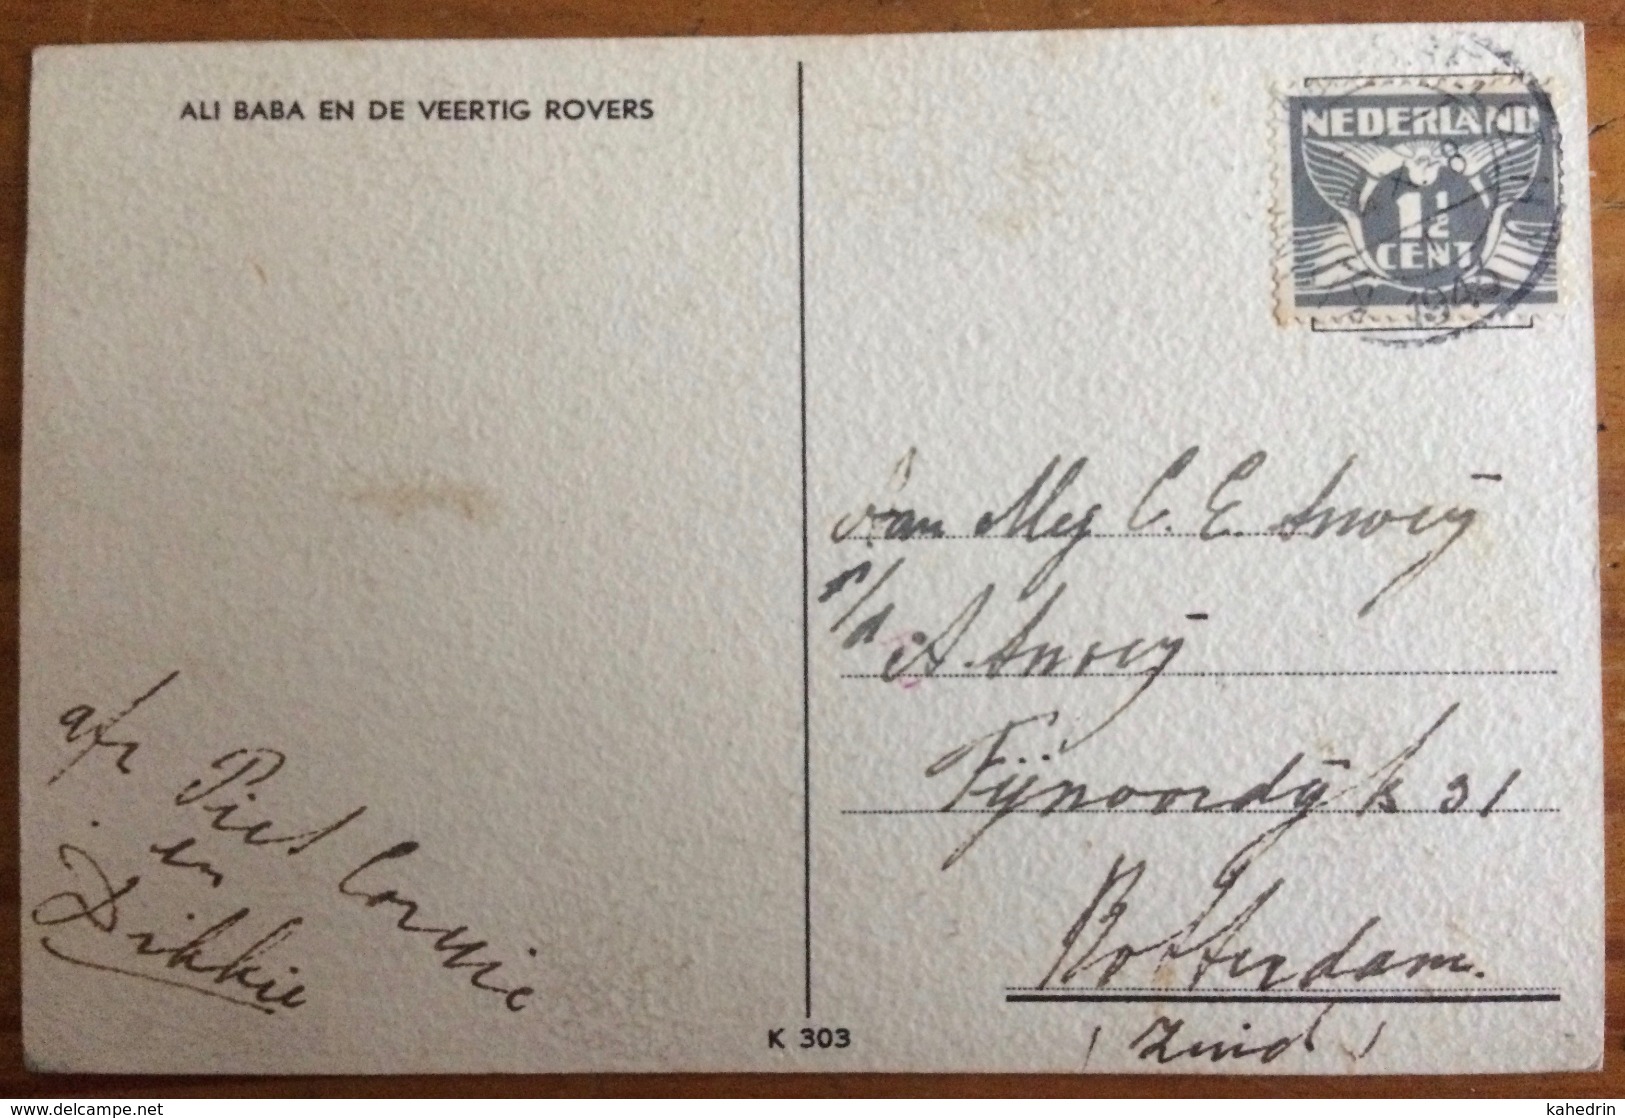 ALI BABA EN DE VEERTIG ROVERS
NEDERLAND
8
1½
CENT
194
Aan Mej C. E. Snoeij
p/a A. Snoeij
Fijnoordijk 31
Rotterdam.
(Zuid)
afz Piet Corrie
en
Dikkie
K 303
www.delcampe.net
kahedrin